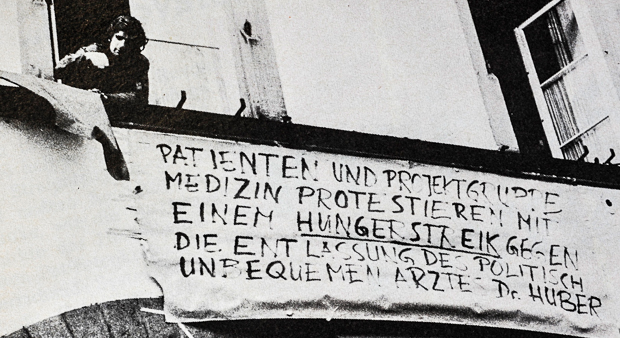 PATIENTEN UND PROJEKTGRUPPE
MEDIZIN PROTESTIEREN MIT
EINEM HUNGERSTREIK GEGEN
DIE ENTLASSUNG DES POLITISCH
UNBEQUEMEN ARZTES Dr. HUBER